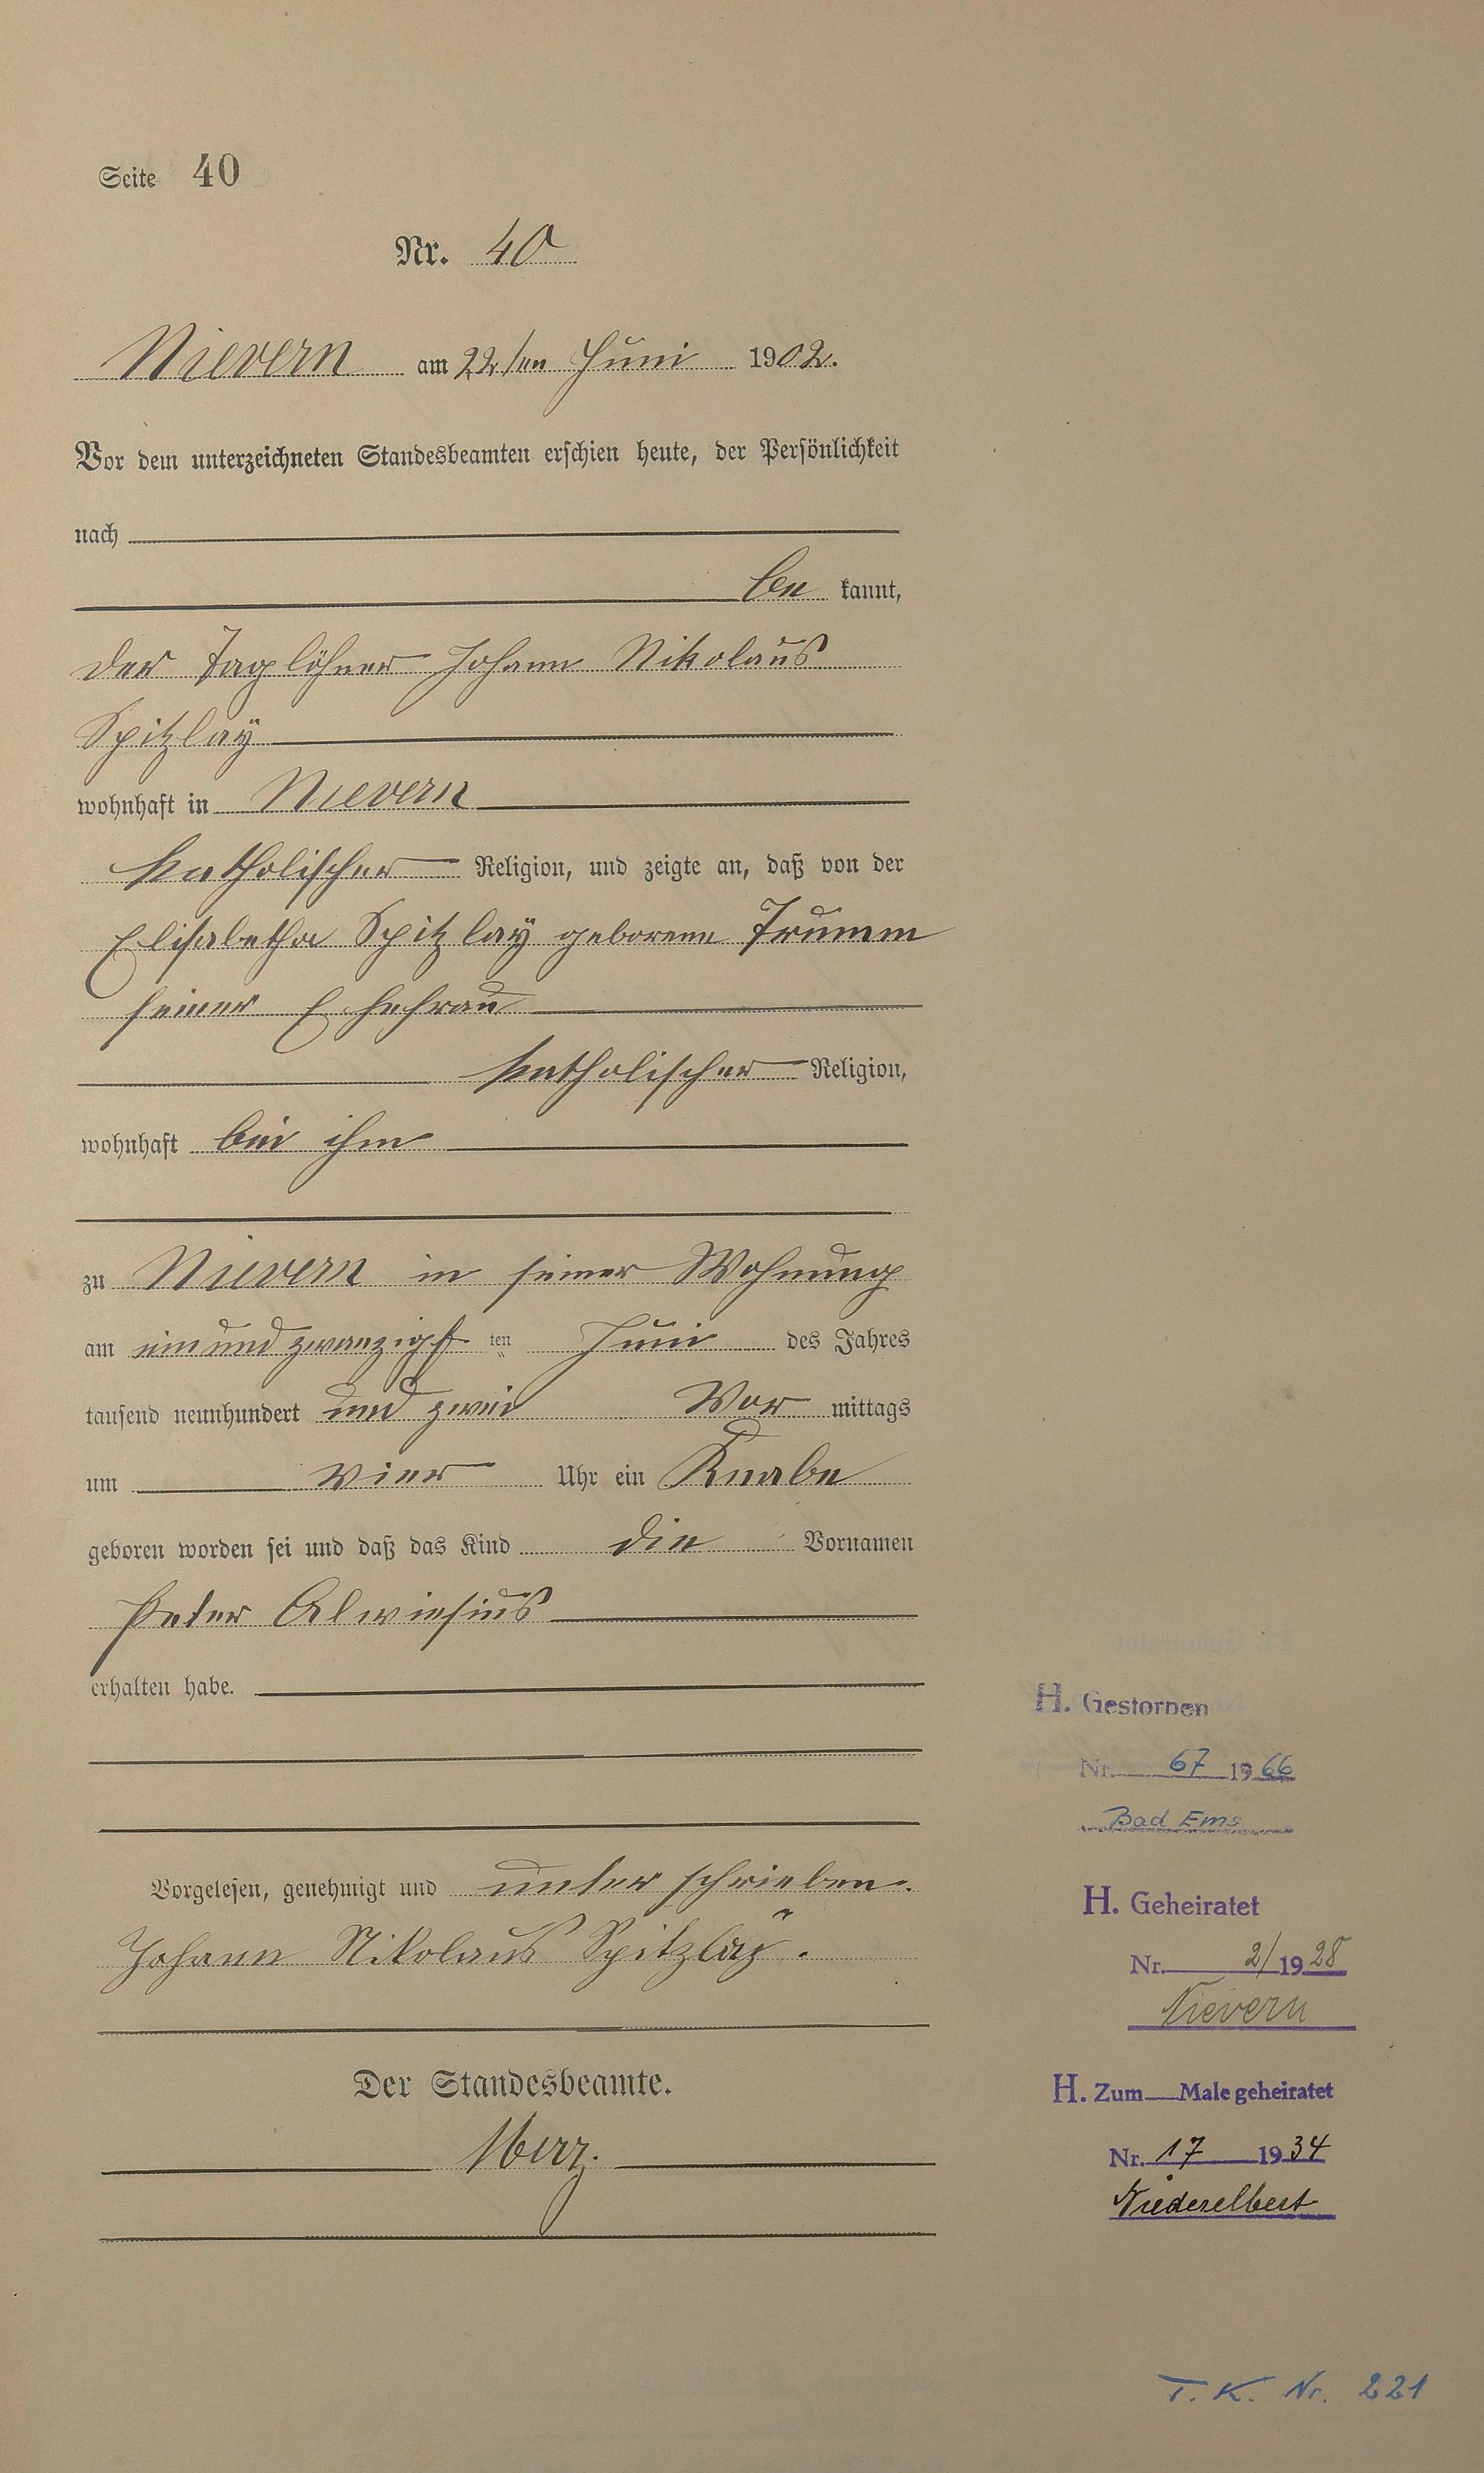 Seite 40
Nr. 40
Nievern am 22ten Juni 1902.
Vor dem unterzeichneten Standesbeamten erschien heute, der Persönlichkeit
nach
be kannt,
der Taglöhner Johann Nikolaus
Spitzlaÿ
wohnhaft in Nievern
katholischer Religion, und zeigte an, daß von der
Elisabetha Spitzlaÿ geborene Trumm
seiner Ehefrau
katholischer Religion,
wohnhaft bei ihm
zu Nievern in seiner Wohnung
am einundzwanzigsten Juni des Jahres
tausend neunhundert und zwei Vor mittags
um vier Uhr ein Knabe
geboren worden sei und daß das Kind die Vornamen
Peter Alwiesius
erhalten habe.
Vorgelesen, genehmigt und unterschrieben.
Johann Nikolaus Spitzlaÿ.
Der Standesbeamte.
Merz.
H. Gestorben
Nr. 67 1966
Bad Ems
H. Geheiratet
Nr. 2/1928
Nievern
H. Zum Male geheiratet
Nr. 17 1934
Niederelbert
T. K. Nr. 221